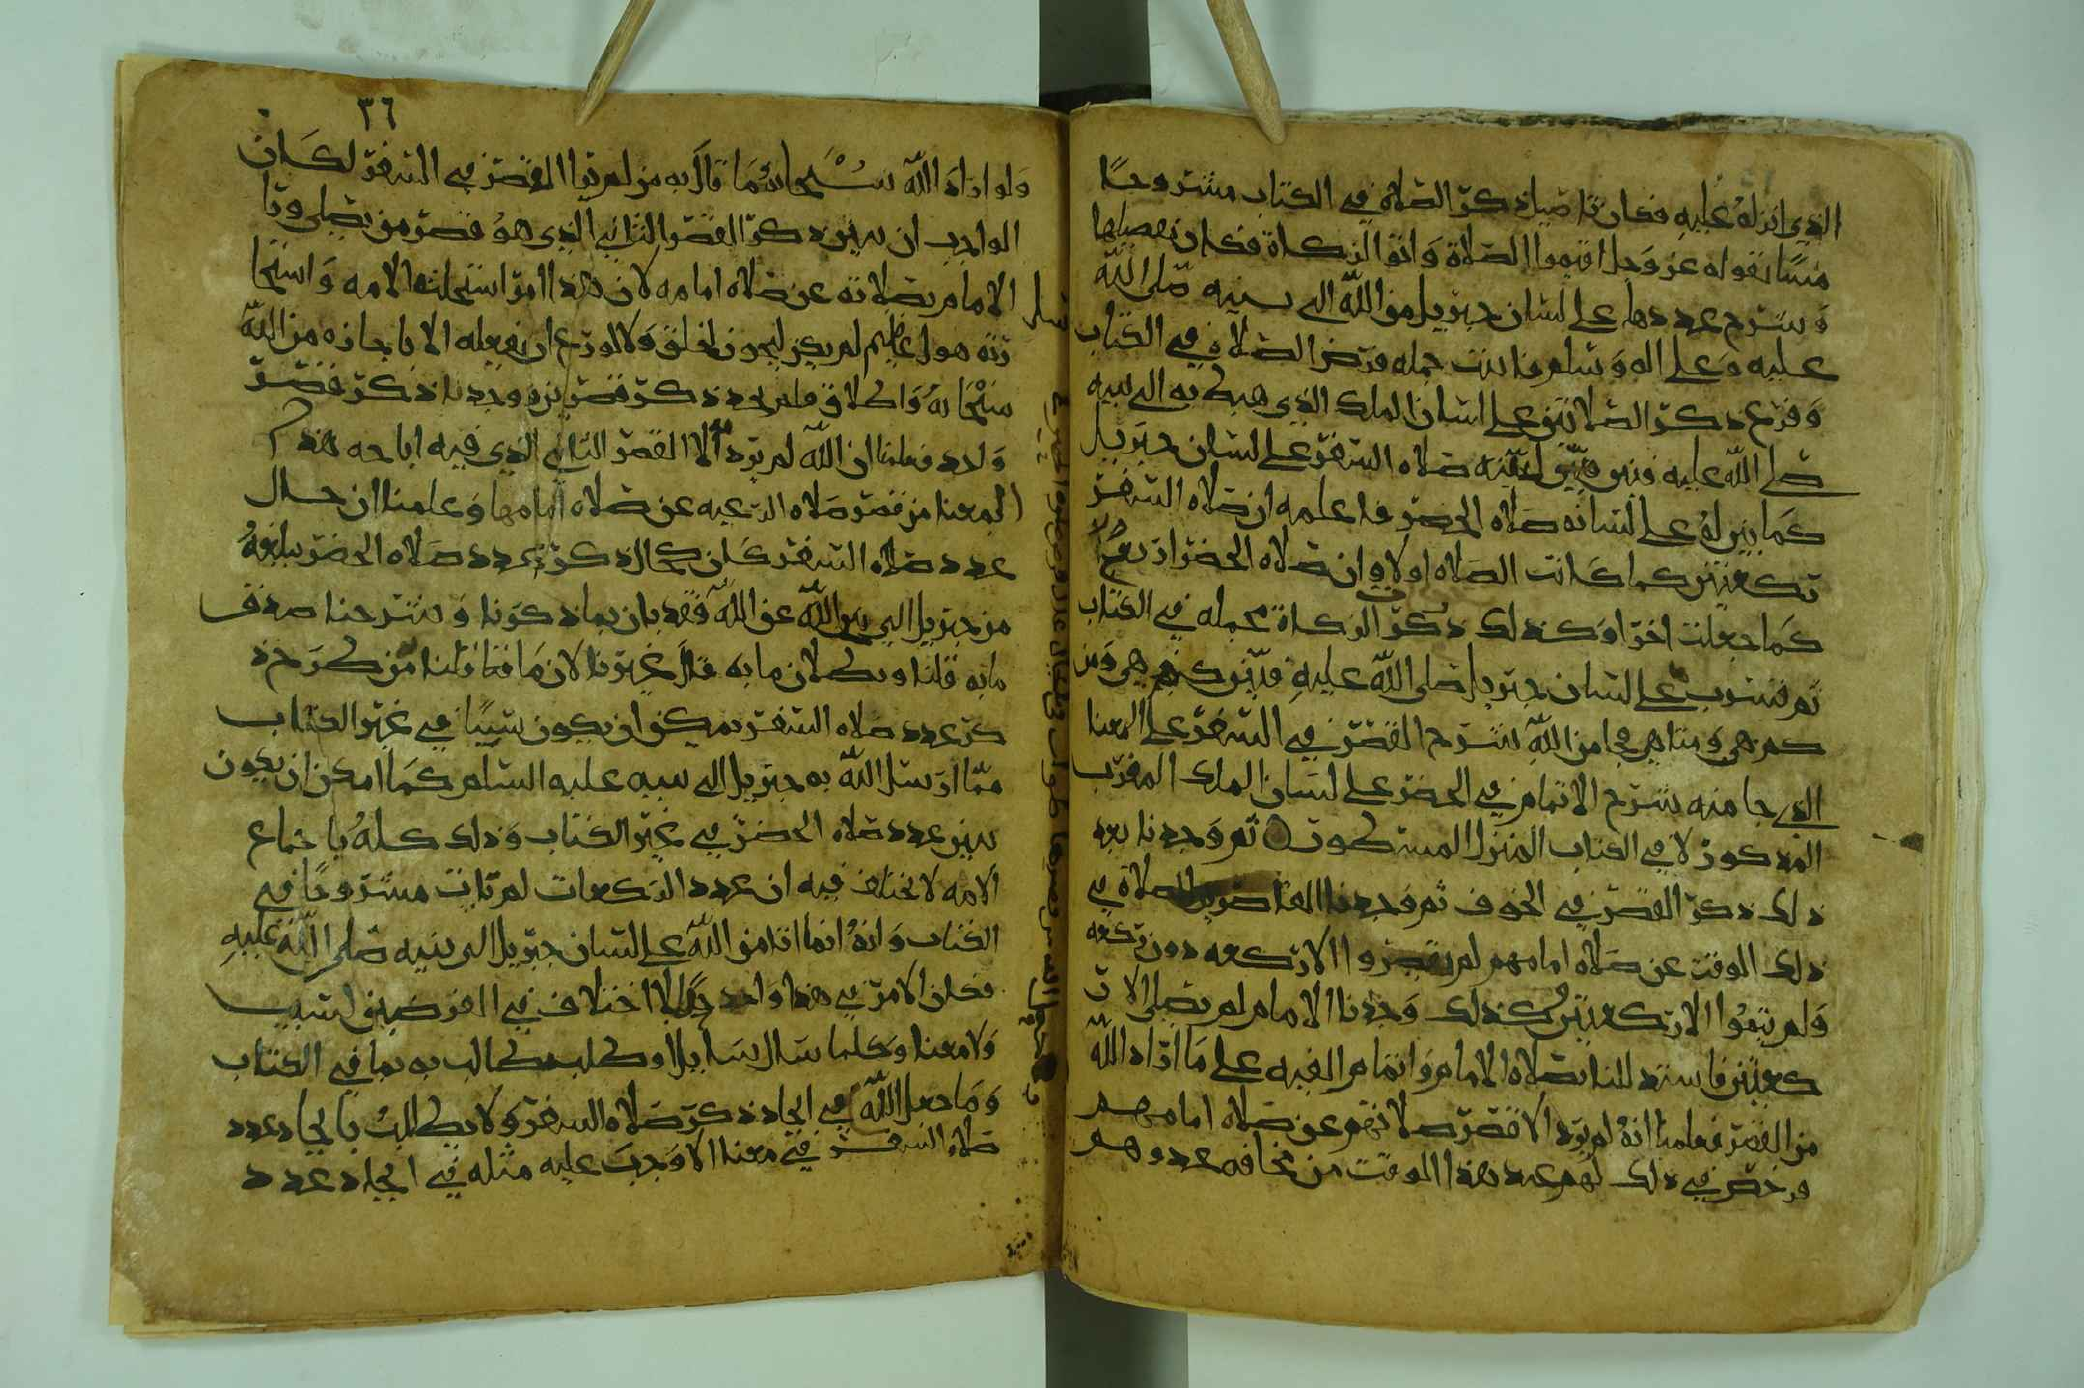 الذي انزله عليه فكان تفاصيل ذكر الصلاة في الكتاب مشروحا
مبينا بقوله عز وجل اقيموا الصلاة واتوا الزكاة فكان تفصيلها
وشرح عددها على لسان جبريل من الله الى نبيه صلى الله
عليه وعلى اله وسلم فاتت جمله فرض الصلاة في الكتاب
وفرع ذكر الصلاتين على لسان الملك الذي هبط به الى نبيه
صلى الله عليه فبين لنبيه صلاه السفر على لسان جبريل
كما بين له على لسانه صلاه الحضر فاعلمه ان صلاه السفر
ركعتين كما كانت الصلاه اولا وان صلاه الحضر اربع
كما جعلت اخرا وكذلك ذكر الزكاة مجمله في الكتاب
ثم فسرت على لسان جبريل صلى الله عليه فبين كيف هي ومن
كم هي ومتا هي فجا من الله شرح القصر في السفر على المعنا
الذي جا منه شرح الاتمام في الحضر على لسان الملك المقرب
المذكور لا في الكتاب المنزل المسطور ثم وجدنا بعد
ذلك ذكر القصر في الخوف ثم وجدنا القاصرين الصلاة في
ذلك الوقت عن صلاه امامهم لم يقصروا الا ركعه دون ركعه
ولم يتموا الا ركعتين وكذلك وجدنا الامام لم يصلي الا ر
كعتين فاستدللنا بصلاة الامام واتمام الفيه على ما اراد الله
من القصر فعلمنا انه لم يرد الا قصر صلاتهم عن صلاه امامهم
فرخص في ذلك لهم عند هذا الوقت من مخافه عدوهم
٣٦
ولو اراد الله سبحانه ما قال به من لم يرا القصر في السفر لكان
الواجب ان يبين ذكر القصر الثاني الذي هو قصر من يصلي ورا
الامام بصلاته عن صلاه امامه لان هذا امر استحلته الامه واستجا
زته هول عظيم لم يكن ليجوز لخلق ولا لورع ان يفعله الا باجازه من الله
سبحانه واطلاق فلم نجد ذكر قصرين ووجدنا ذكر قصر
واحد فعلمنا ان الله لم يرد الا القصر الثاني الذي فيه اباحه هذا
المعنا من قصر صلاه الرعيه عن صلاه امامها وعلمنا ان حال
عدد صلاه السفر كان كحال ذكر عدد صلاه الحضر بلغه
من جبريل الى نبي الله عن الله فقد بان بما ذكرنا وشرحنا صدق
ما به قلنا وبطلان ما به قال غيرنا لان مافتا قلنا من طرح ذ
كر عدد صلاه السفر يمكن ان يكون شيا في غير الكتاب
مما ارسل الله به جبريل الى نبيه عليه السلام كما امكن ان يكون
تبين عدد صلاه الحضر في غير الكتاب وذلك كله باجماع
الامه لا تختلف فيه ان عدد الركعات لم تات مشروحا في
الكتاب وانه انما اتا من الله على لسان جبريل الى نبيه صلى الله عليه
فكان الامر في هذا واحد لا اختلاف في الفرضين لسبب
ولا معنا وكلما سال سايل او طلب طالب به بما في الكتاب
وما جعل الله في ايجاد ذكر صلاه السفر ولا يطالب بايجاد عدد
صلاه السفر في معنا الا وجب عليه مثله في ايجاد عدد